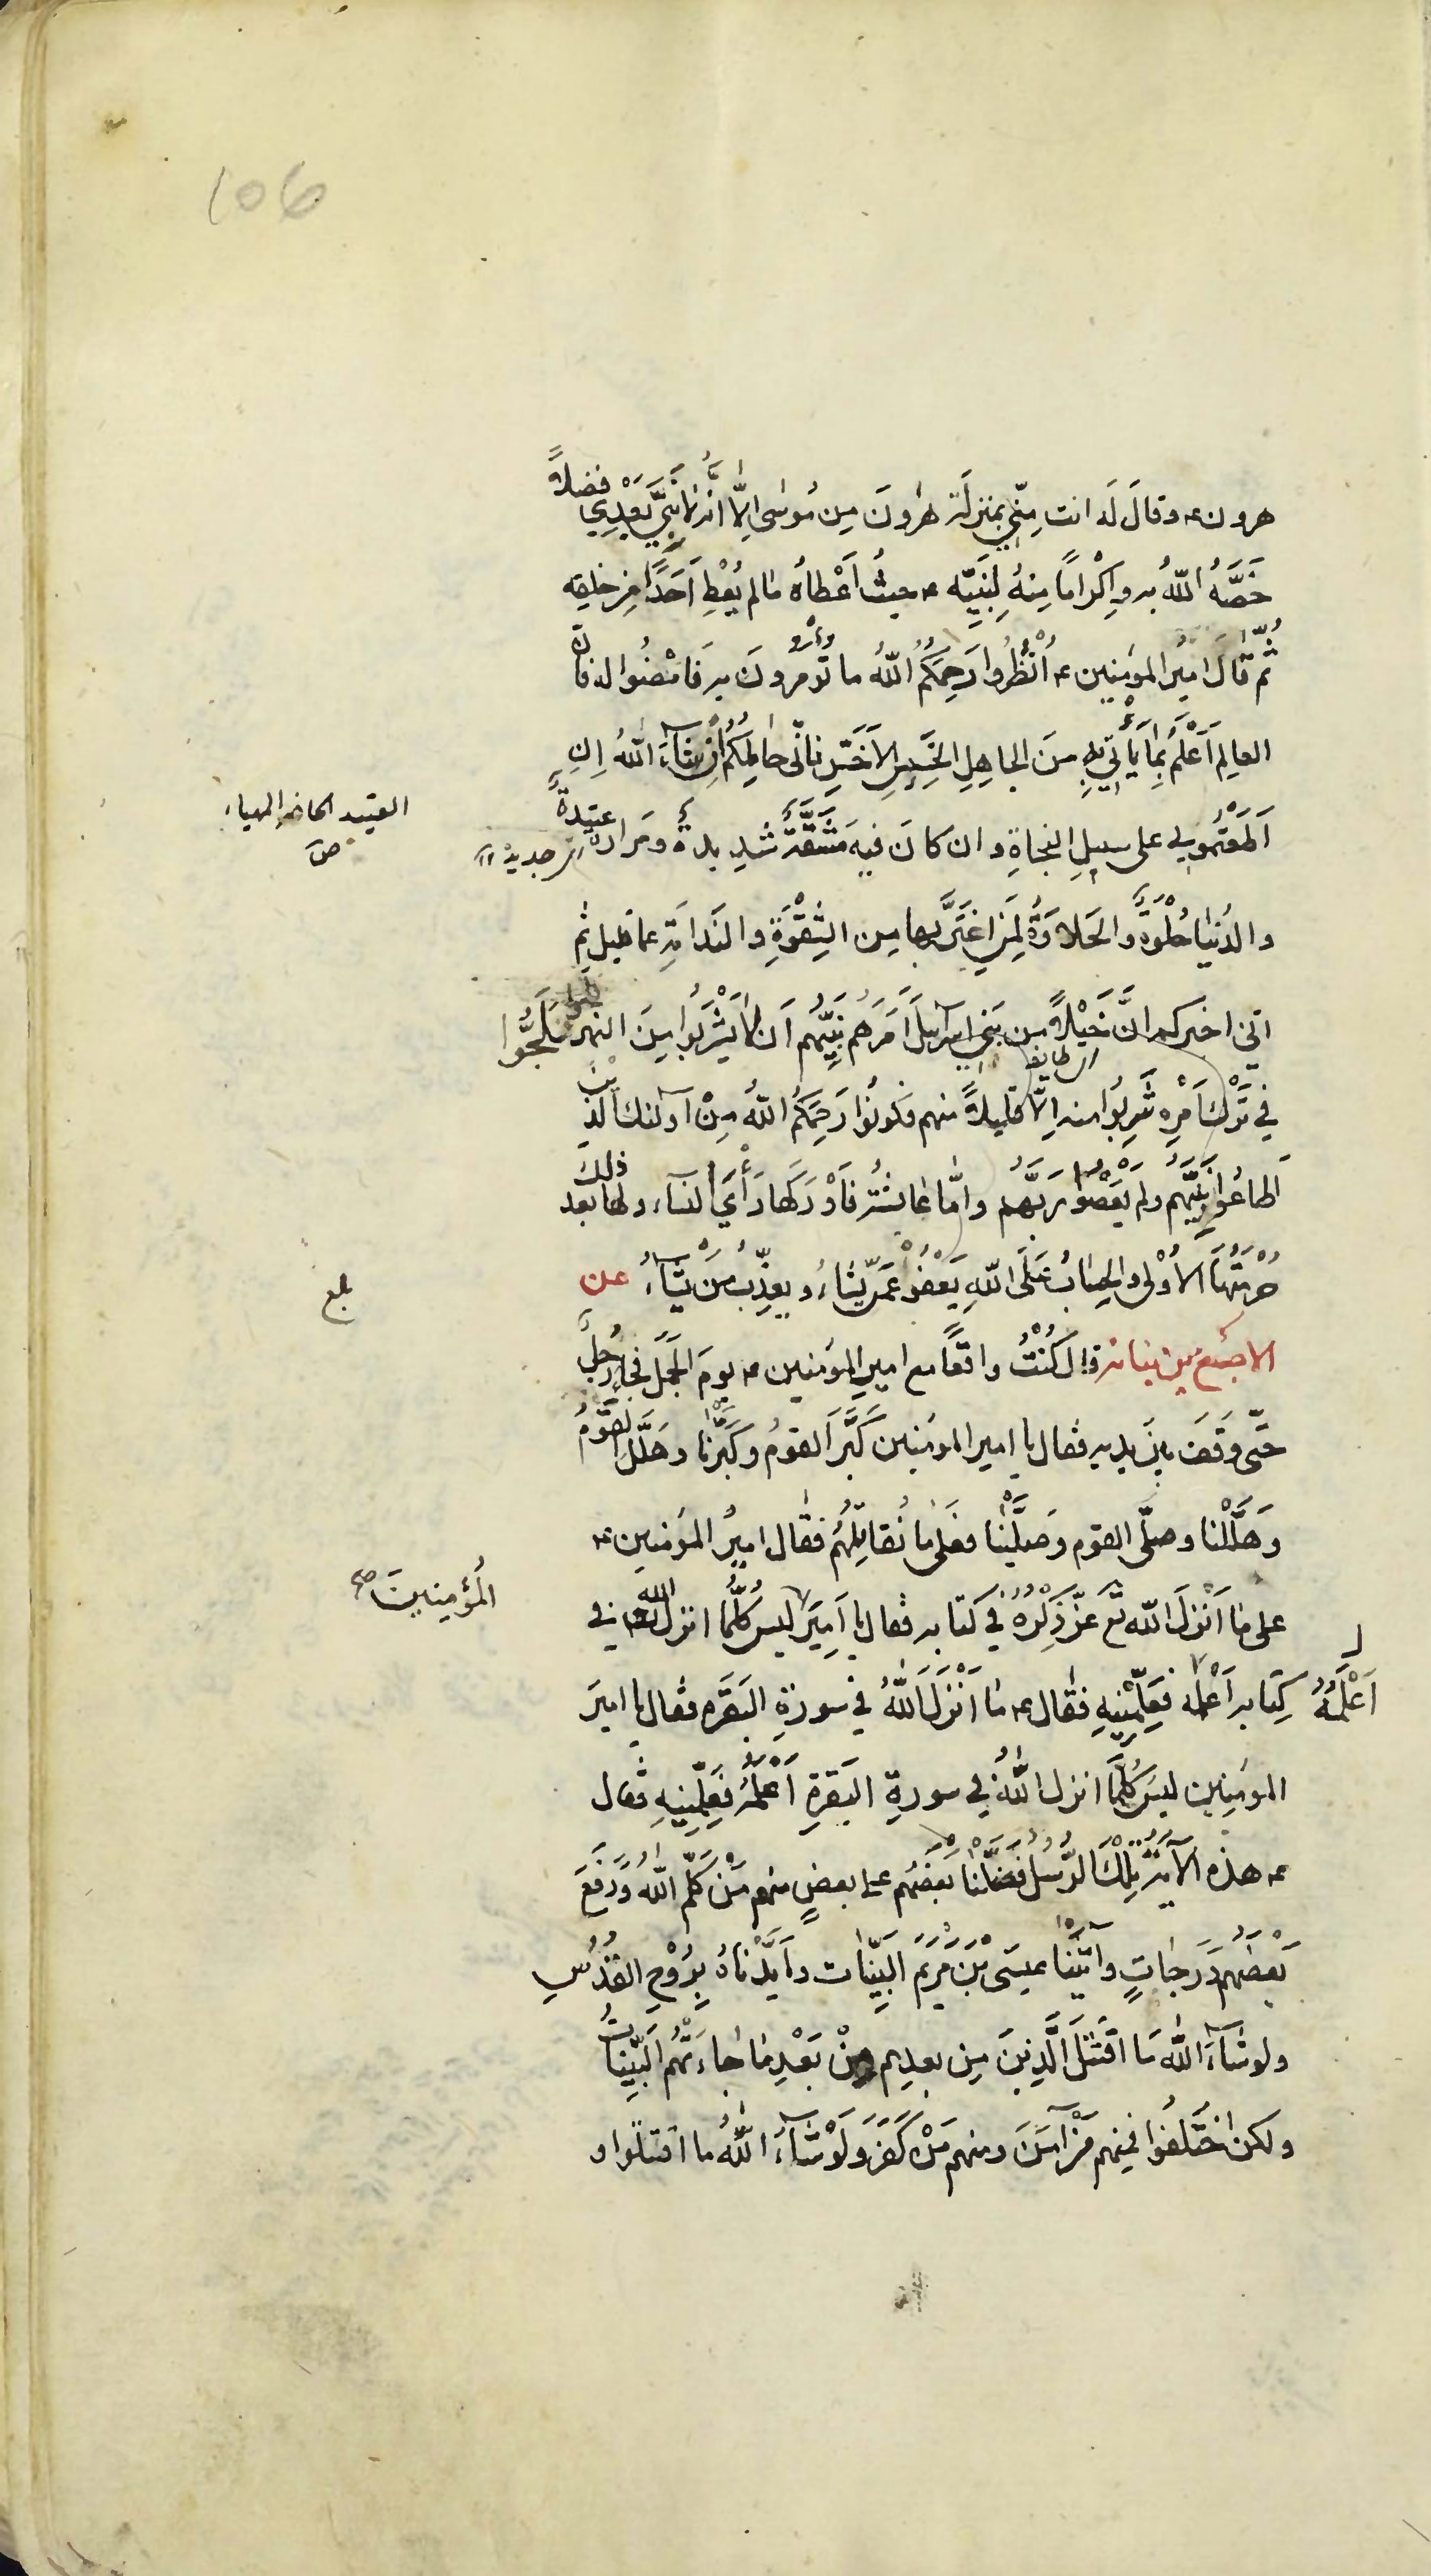 106
هرون ع وقالَ لَه انت مِنّي بمنزلة هٰرونَ مِن مُوسى اِلّا انّه لا نَبيَّ بَعْدِي فضلاً
خَصَّهُ اللّهُ به واِكْرامًا مِنهُ لِنَبيّه ع حيثُ اَعْطاهُ مَا لم يُعْطِ اَحَدًا مِن خلقِه
ثُمّ قالَ اميرُ المؤمنين ع اُنْظُرُوا رَحِمَكُمُ اللّهُ ما تُؤمرونَ به فَامْضُوا له فانّ
العالِم اَعْلَمُ بِمَا يَأتي بِهِ مِنَ الجاهِلِ الخَسيسِ الاَخَسِّ فانّى حامِلُكُم اِنْ شآءَ اللّهُ اِنِ
اَطَعْتُمُوني على سبيلِ النجاةِ وان كانَ فيهِ مَشَقَّةٌ شديدةٌ ومَرارةٌ عتيدةٌ
العتيد الحاضر المهياء
ص
والدُنيا حُلْوَةٌ والحَلاوَةُ لِمَنِ اغتَرَّ بها مِن الشِقْوَةِ والنَدامَةِ عما قليل ثم
انّي اخبركم انَّ خَيْلاً مِن بَني اسرآئيلَ اَمَرَهُم نَبِيُّهُم اَن لا يَشْرَبُوا مِنَ النهر فلَجُّوا
في تَرْكِ اَمْرِه شَرِبُوا منه اِلّا قليلاً منهم فكونُوا رَحِمَكُمُ اللّهُ مِنْ اولئك الّذينَ
اَطاعُوا نَبِيَّهُم ولم يَعْصُوا رَبَّهُم وامّا عائشة فاَدْرَكَها رَأيُ النسآء ولها بعد ذلك
حُرْمَتُها الاُوْلى والحِسابُ عَلَى اللّهِ يَعْفُو عَمَّن يَّشاءُ ويعذِّبُ مَنْ يَّشآءُ عن
بلغ
الاصبغ بن نباته قال كُنْتُ واقفًا مع اميرِ المؤمنين ع يومَ الجَمَلِ فجاءَ رَجُلٌ
حَتّى وَقَفَ بينَ يديه فقال يا امير المؤمنين كَبَّرَ القومُ وكَبَّرْنا وهَلَّلَ القَوْمُ
وَهَلَّلْنا وصلّى القوم وَصلَّيْنا فعَلى مَا نُقاتِلُهُم فقال اميرُ المؤمنين ع
على مَا اَنْزَلَ اللّه تع عزّ ذِكْرُهُ في كتابه فقال يا اَمِيرَ ليس كلُّمَا انزل اللّه في
المُؤمِنِينَ صح
كِتَابه اَعْلَمُه فَعَلِّمْنِيهِ فقال ع مَا اَنْزَلَ اللّهُ في سورةِ البَقَرة فقال يا اميرَ
اَعْلَمُهُ
المؤمنين ليسَ كلُّمَا انزل اللّهُ في سورةِ البَقرةِ اَعْلَمُهُ فَعَلِّمْنِيهِ فقال
ع هذه الآيَةَ تِلْكَ الرُّسُلُ فَضَّلْنَا بَعْضَهُم على بعضٍ منهم مَنْ كَلَّمَ اللّهُ وَرَفَعَ
بَعْضَهُم دَرَجَاتٍ وآتَيْنا عيسَى بْنَ مَرْيَمَ البَيِّنات واَيَّدْنَاهُ بِرُوْحِ القُدُسِ
ولو شآءَ اللّه مَا اقْتَتَلَ الَّذِينَ مِن بعدِهم مِنْ بَعْدِ مَا جاءَتْهُم البَيِّنَاتُ
ولكن اخْتَلَفُوا فمِنهم مَنْ آمَنَ ومنهم مَنْ كَفَرَ وَلَوْ شآءَ اللّهُ ما اقتتلوا و